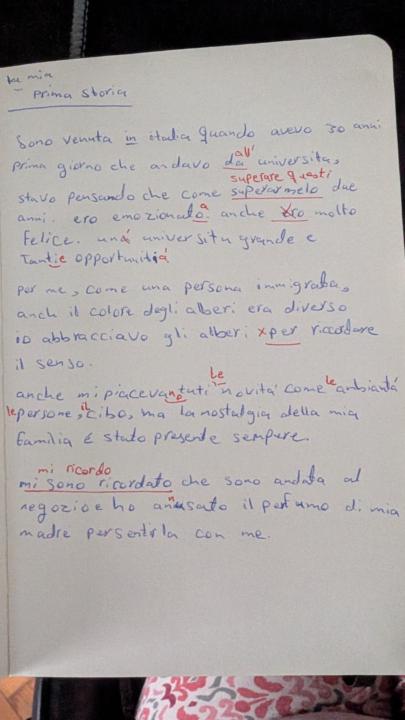 la mia
Prima storia
Sono venuta in italia quando avevo 30 anni
all'
prima giorno che andavo da universita,
superare questi
stavo pensando che come superarmelo due
a
anni. ero emozionato. anche ero molto
felice. una universita grande e
Tantie opportunitiá
per me, come una persona immigraba,
anch il colore degli alberi era diverso
io abbracciavo gli alberi xper riccodare
il senso.
le
anche mi piacevano tuti novitá come le ambiantá
le persone, il cibo, ma la nostalgia della mia
familia é stato presente sempure.
mi ricordo
mi sono ricordato che sono andata al
n
negozio e ho anusato il perfumo di mia
madre per sentirla con me.